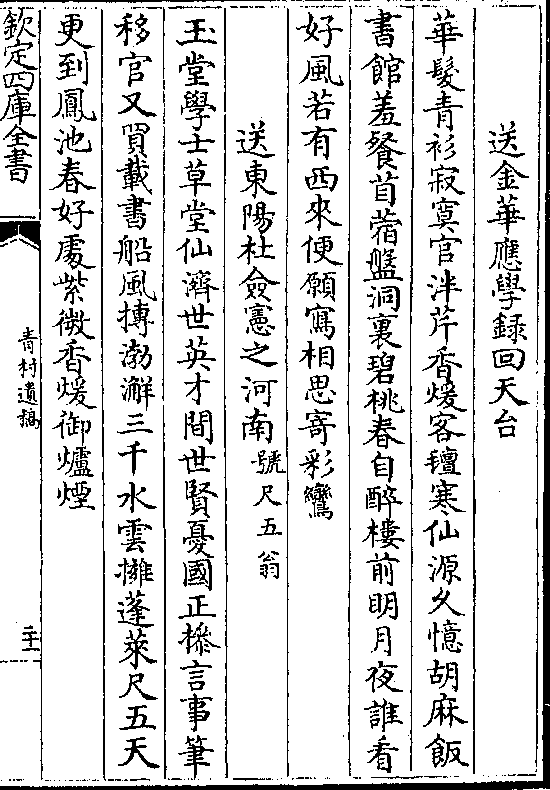 送金華應學錄回天台
華髮青衫寂寞官泮芹香煖客氊寒仙源久憶胡麻飯
書館羞餐苜蓿盤洞裏碧桃春自醉樓前明月夜誰看
好風若有西來便願寫相思寄彩鸞
送東陽杜僉憲之河南號尺五翁
玉堂學士草堂仙濟世英才間世賢憂國正摻言事筆
移官又買載書船風摶渤澥三千水雲擁蓬萊尺五天
更到鳳池春好處紫微香煖御爐煙
欽定四庫全書
青村遺稿
二十